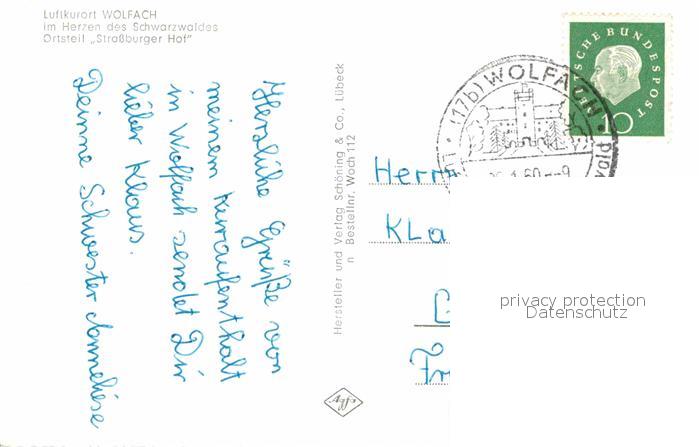 Luftkurort WOLFACH
im Herzen des Schwarzwaldes
Ortsteil „Straßburger Hof"
Herzliche Grüße von
meinem Kuraufenthalt
in Wolfach sendet Dir
lieber Klaus.
Deinne Schwester Anneliese
Hersteller und Verlag Schöning & Co., Lübeck
Bestellnr. Woch 112
DEUTSCHE BUNDESPOST
(17b) WOLFACH
60
Herrn
Kla
Fr
Agfa
privacy protection
Datenschutz